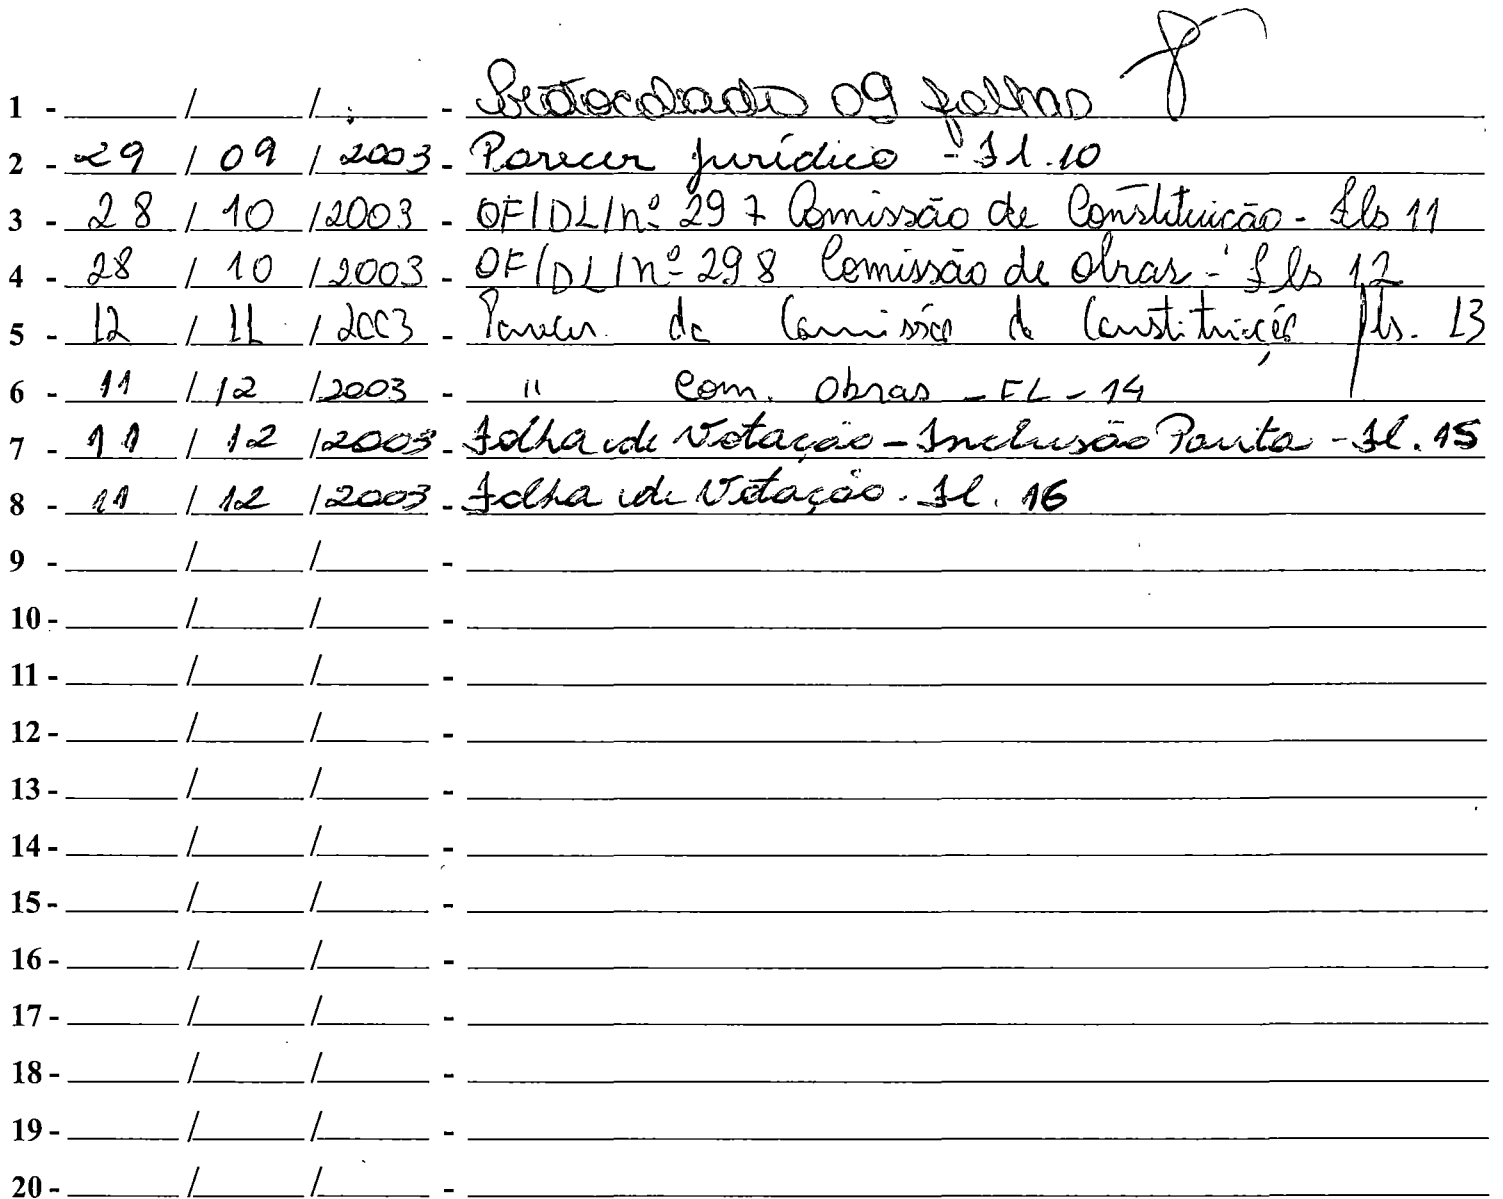 1 - ____ / ____ / ____ - Protocolado 09 folhas
2 - 29 / 09 / 2003 - Parecer jurídico - Fl. 10
3 - 28 / 10 / 2003 - OF/DL/nº 297 Comissão de Constituição - Fls 11
4 - 28 / 10 / 2003 - OF/DL/nº 298 Comissão de obras - Fls 12
5 - 12 / 11 / 2003 - Parecer da Comissão de Constituição fls. 13
6 - 11 / 12 / 2003 - " Com. Obras - FL - 14
7 - 11 / 12 / 2003 - Folha de Votação - Inclusão Pauta - Fl. 15
8 - 11 / 12 / 2003 - Folha de Votação - Fl. 16
9 - ____ / ____ / ____ -
10 - ____ / ____ / ____ -
11 - ____ / ____ / ____ -
12 - ____ / ____ / ____ -
13 - ____ / ____ / ____ -
14 - ____ / ____ / ____ -
15 - ____ / ____ / ____ -
16 - ____ / ____ / ____ -
17 - ____ / ____ / ____ -
18 - ____ / ____ / ____ -
19 - ____ / ____ / ____ -
20 - ____ / ____ / ____ -